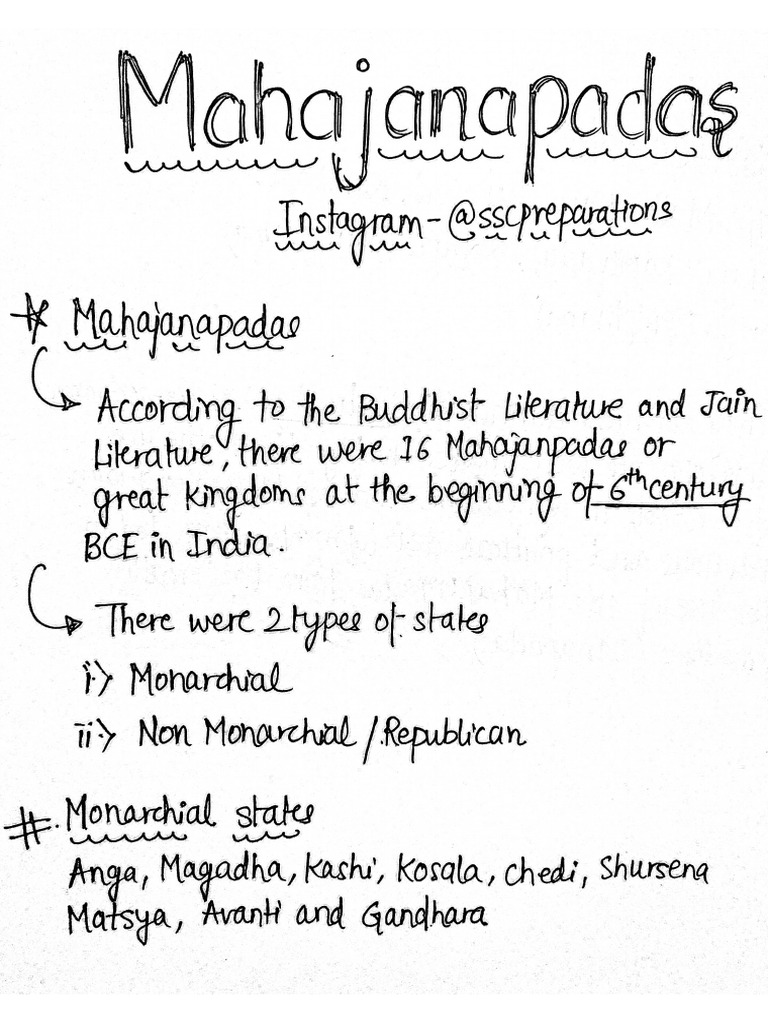 Mahajanapadas
Instagram - @sscpreparations
* Mahajanapadas
According to the Buddhist Literature and Jain
Literature, there were 16 Mahajanpadas or
great kingdoms at the beginning of 6th century
BCE in India.
There were 2 types of states
i) Monarchial
ii) Non Monarchial / Republican
# Monarchial states
Anga, Magadha, Kashi, Kosala, Chedi, Shursena
Matsya, Avanti and Gandhara